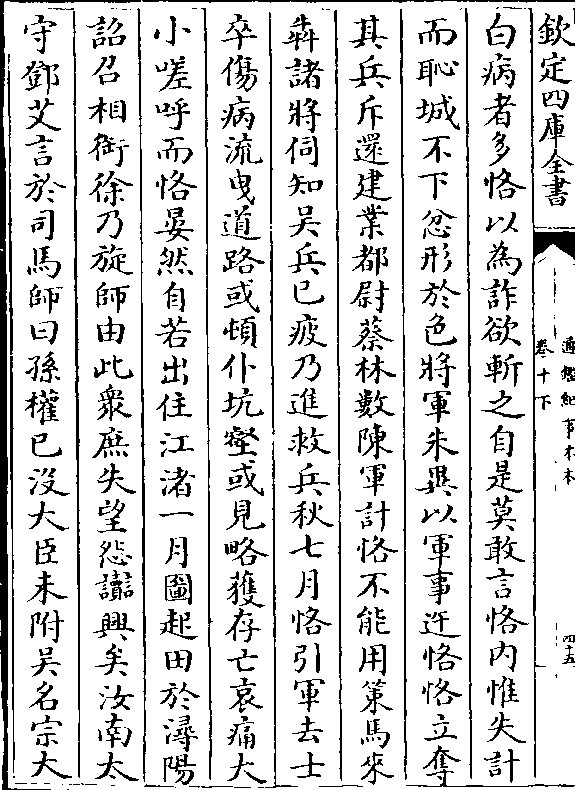 欽定四庫全書
通鑑紀事本末
卷十下
四十五
白病者多恪以為詐欲斬之自是莫敢言恪内惟失計
而恥城不下忿形於色將軍朱異以軍事迕恪恪立奪
其兵斥還建業都尉蔡林數陳軍計恪不能用策馬來
犇諸將伺知吴兵已疲乃進救兵秋七月恪引軍去士
卒傷病流曳道路或頓仆坑壑或見略獲存亡哀痛大
小嗟呼而恪晏然自若出住江渚一月圖起田於潯陽
詔召相銜徐乃旋師由此衆庶失望怨讟興矣汝南太
守鄧艾言於司馬師曰孫權已沒大臣未附吴名宗大